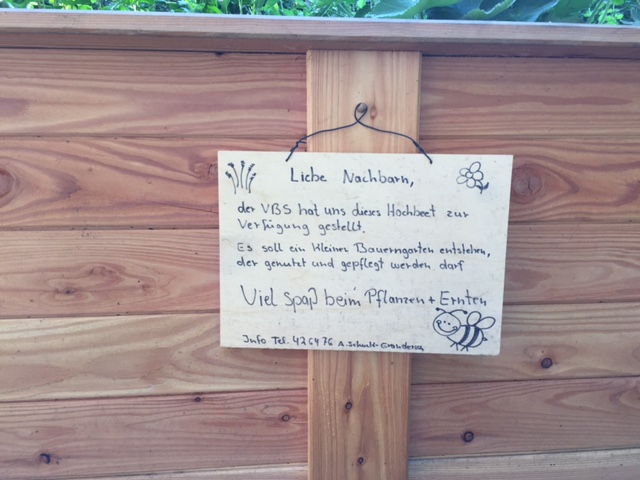 Liebe Nachbarn,
der VBS hat uns dieses Hochbeet zur
Verfügung gestellt.
Es soll ein kleiner Bauerngarten entstehen,
der genutzt und gepflegt werden darf
Viel Spaß beim Pflanzen + Ernten
Info Tel. 426476 A.Schult-